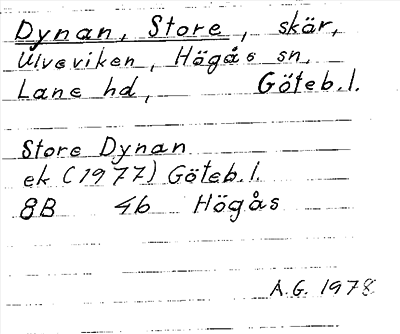 Dynan, Store, skär,
Ulvsviken, Högås sn,
Lane hd, Göteb.l.
Store Dynan
ek (1977) Göteb.l.
8B 4b Högås
A.G. 1978